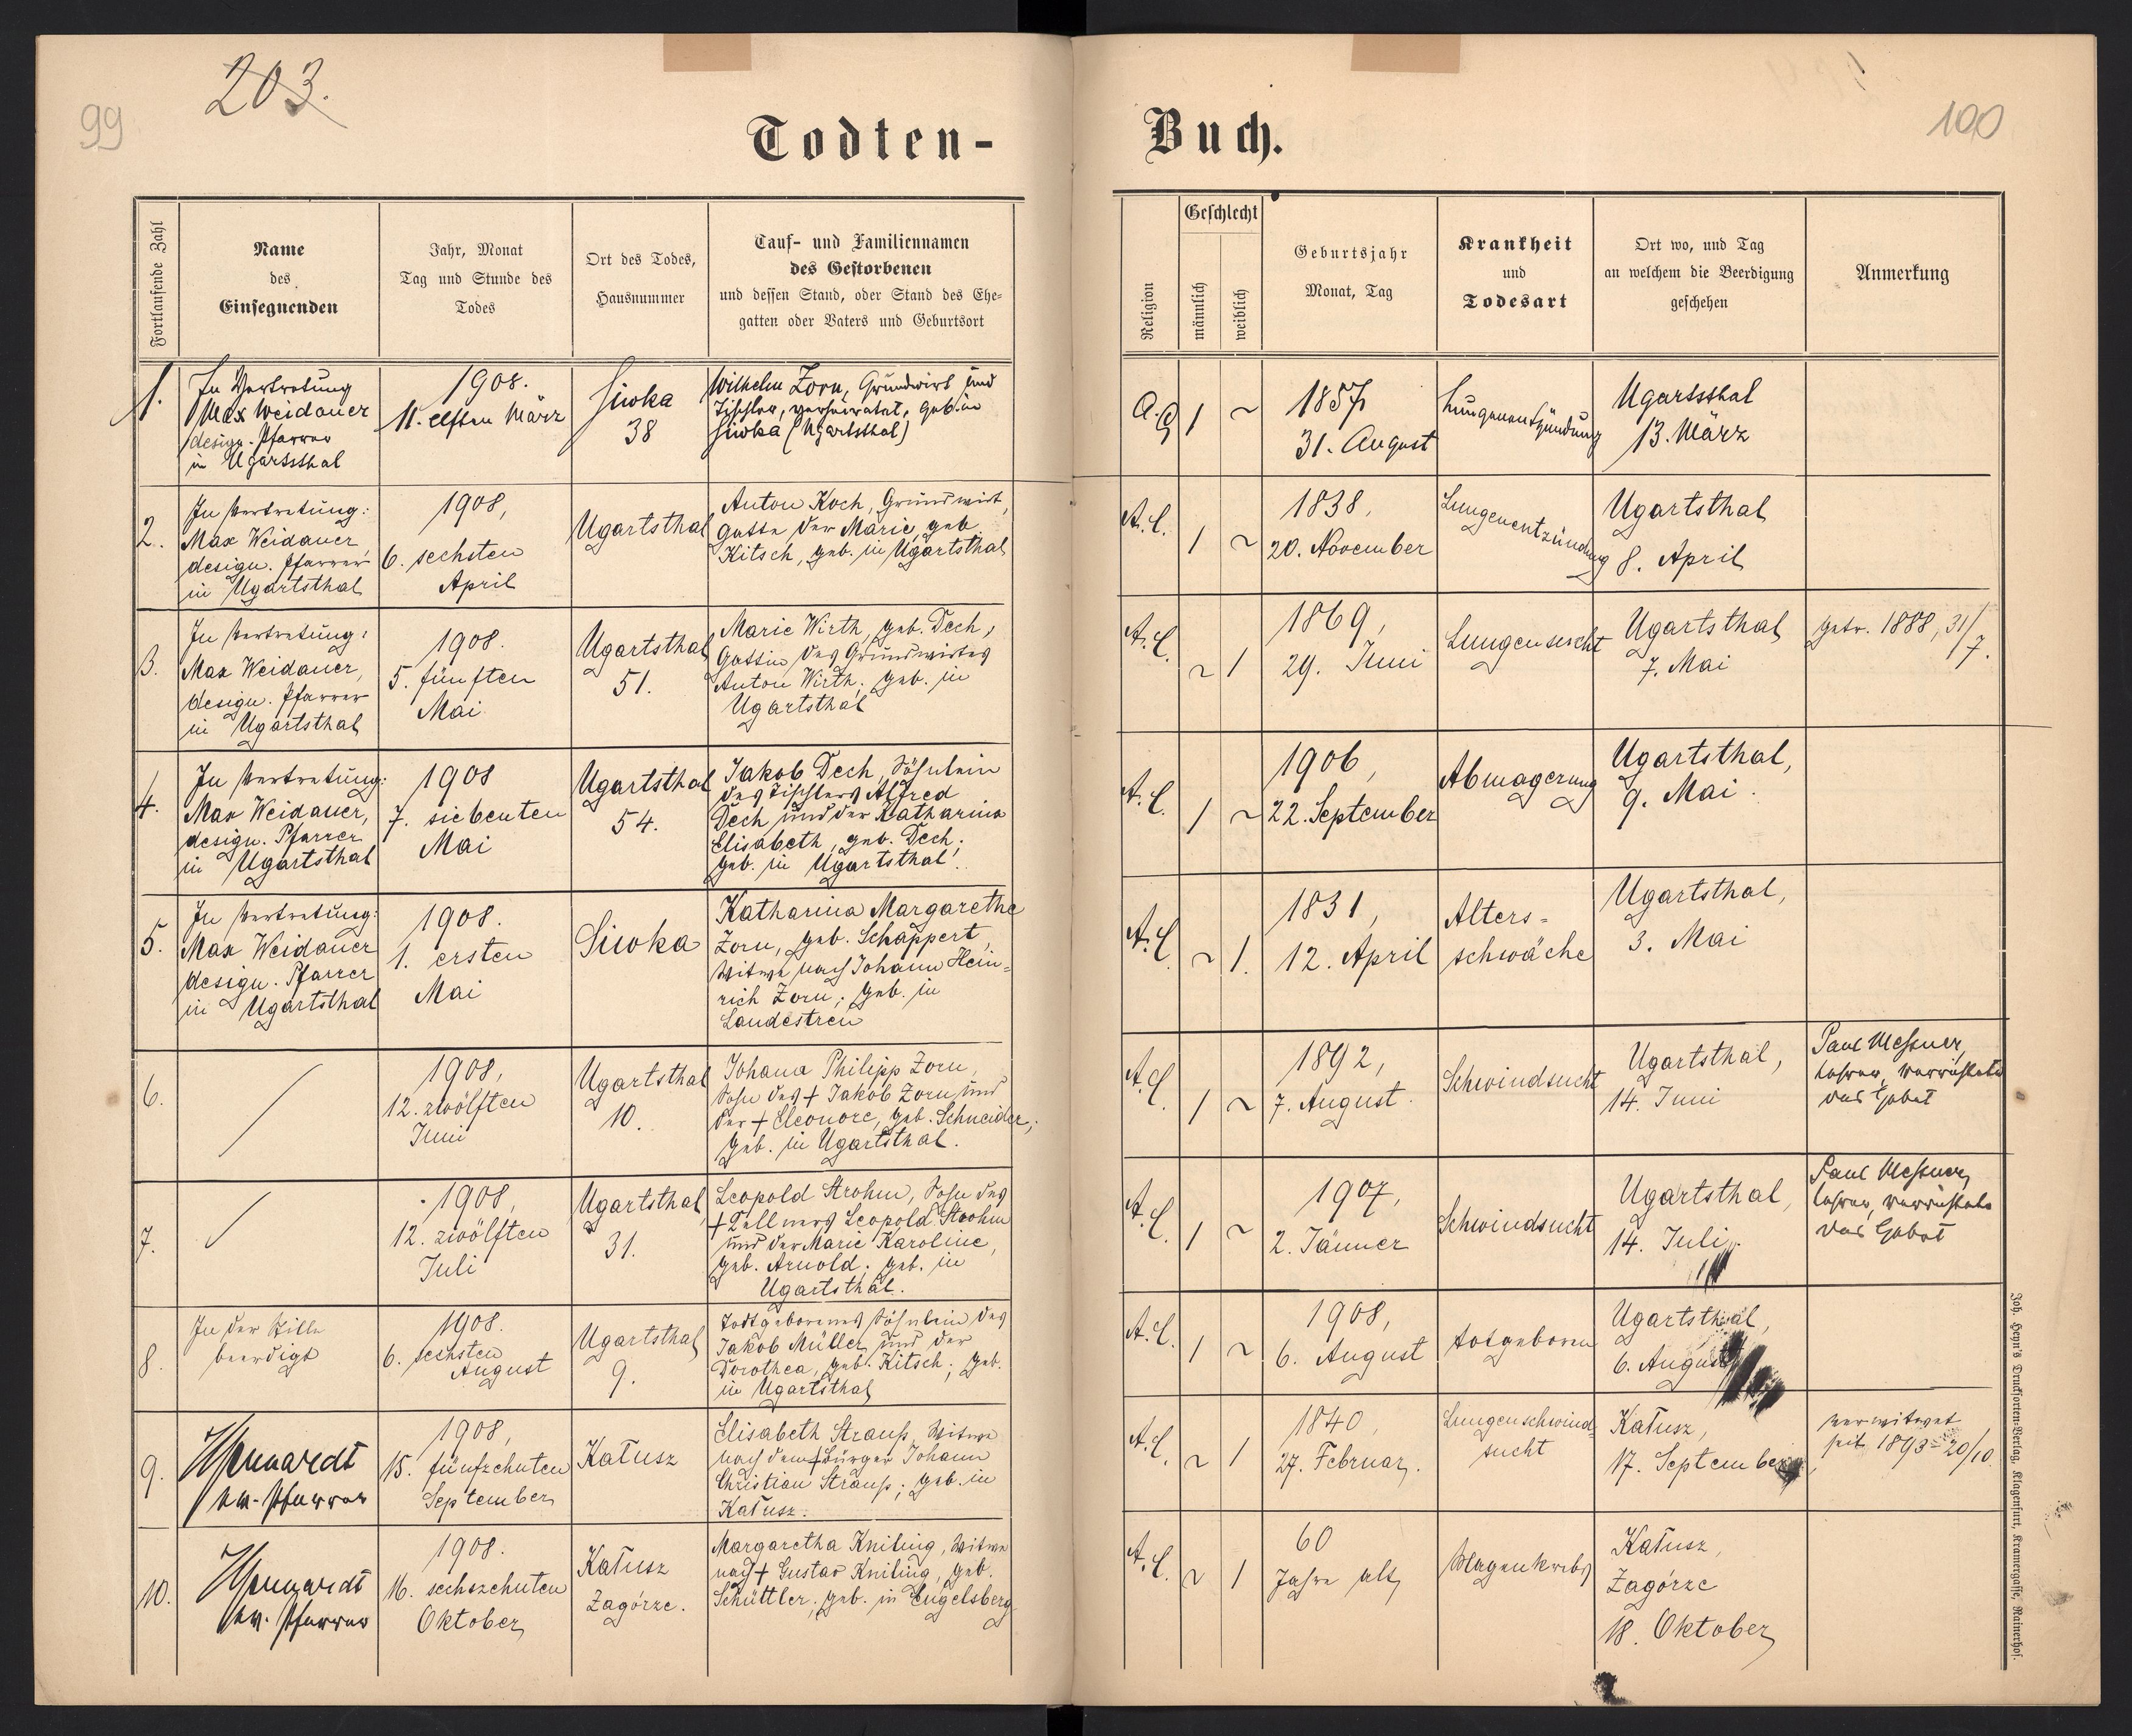 203.
99
100
Todten-
Buch.
Fortlaufende Zahl
Name
des
Einsegnenden
Jahr, Monat
Tag und Stunde des
Todes
Ort des Todes,
Hausnummer
Tauf- und Familiennamen
des Gestorbenen
und dessen Stand, oder Stand des Ehe-
gatten oder Vaters und Geburtsort
Religion
Geschlecht
männlich
weiblich
Geburtsjahr
Monat, Tag
Krankheit
und
Todesart
Ort wo, und Tag
an welchem die Beerdigung
geschehen
Anmerkung
1.
In Vertretung
Max Weidauer
design. Pfarrer
in Ugartsthal
1908.
11. elften März
Siwka
38
Wilhelm Zorn, Grundwirt und
Tischler, verheiratet, geb. in
Siwka (Ugartsthal)
A. C.
1
~
1857
31. August
Lungenentzündung
Ugartsthal
13. März
2.
In Vertretung:
Max Weidauer,
design. Pfarrer
in Ugartsthal
1908,
6. sechsten
April
Ugartsthal
Anton Koch, Grundwirt,
Gatte der Marie, geb.
Kitsch, geb. in Ugartsthal
A. C.
1
~
1838,
20. November
Lungenentzündung
Ugartsthal
8. April
3.
In Vertretung:
Max Weidauer,
design. Pfarrer
in Ugartsthal
1908.
5. fünften
Mai
Ugartsthal
51.
Marie Wirth, geb. Dech,
Gattin des Grundwirtes
Anton Wirth; geb. in
Ugartsthal
A. C.
~
1
1869,
29. Juni
Lungensucht
Ugartsthal
7. Mai
getr. 1888, 31/7.
4.
In Vertretung:
Max Weidauer,
design. Pfarrer
in Ugartsthal
1908
7. siebenten
Mai
Ugartsthal
54.
Jakob Dech, Söhnlein
des Tischlers Alfred
Dech und der Katharina
Elisabeth, geb. Dech;
geb. in Ugartsthal.
A. C.
1
~
1906,
22. September
Abmagerung
Ugartsthal,
9. Mai.
5.
In Vertretung:
Max Weidauer
design. Pfarrer
in Ugartsthal
1908.
1. ersten
Mai
Siwka
Katharina Margarethe
Zorn, geb. Schappert,
Witwe nach Johann Hein-
rich Zorn; geb. in
Landestreu
A. C.
~
1.
1831,
12. April
Alters-
schwäche
Ugartsthal,
3. Mai
6.
1908,
12. zwölften
Juni
Ugartsthal
10.
Johann Philipp Zorn,
Sohn des + Jakob Zorn und
der + Eleonore, geb. Schneider;
geb. in Ugartsthal.
A. C.
1
~
1892,
7. August.
Schwindsucht
Ugartsthal,
14. Juni
Paul Meßner,
Lehrer, verrichtete
das Gebet
7.
1908,
12. zwölften
Juli
Ugartsthal
31.
Leopold Strohm, Sohn des
+ Leopold Strohm
und der Marie Karoline,
geb. Arnold; geb. in
Ugartsthal.
A. C.
1
~
1907,
2. Jänner
Schwindsucht
Ugartsthal,
14. Juli.
Paul Meßner,
Lehrer, verrichtete
das Gebet
8.
In der Stille
beerdigt
1908.
6. sechsten
August
Ugartsthal
9.
Todtgeborenes Söhnlein des
Jakob Müller und der
Dorothea, geb. Kitsch; geb.
in Ugartsthal
A. C.
1
~
1908,
6. August
totgeboren
Ugartsthal,
6. August
9.
Pfarrer
1908,
15. fünfzehnten
September
Kałusz
Elisabeth Strauß, Witwe
nach dem + Bürger Johann
Christian Strauß; geb. in
Kałusz.
A. C.
~
1
1840,
27. Februar.
Lungenschwind-
sucht
Kałusz,
17. September
verwitwet
seit 1893 20/10.
10.
Pfarrer
1908.
16. sechszehnten
Oktober
Kałusz
Zagórze.
Margaretha Kniting, Witwe
nach + Gustav Kniting, geb.
Schüttler, geb. in Engelsberg
A. C.
~
1
60
Jahre alt
Magenkrebs
Kałusz,
Zagórze
18. Oktober
Joh. Heyn's Drucksorten-Verlag, Klagenfurt, Kramergasse, Rainerhof.